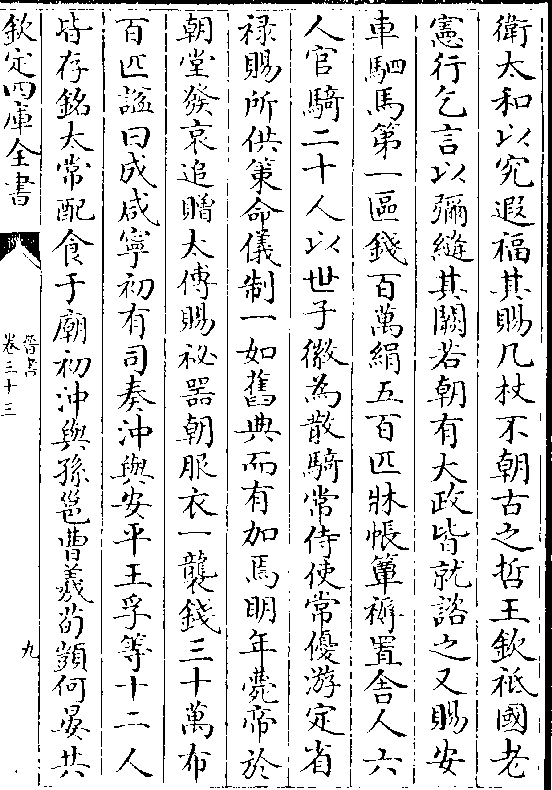 衛太和以究遐福其賜几杖不朝古之哲王欽祗國老
憲行乞言以彌縫其闕若朝有大政皆就諮之又賜安
車駟馬第一區錢百萬絹五百匹牀帳簟褥置舍人六
人官騎二十人以世子徽為散騎常侍使常優游定省
禄賜所供策命儀制一如舊典而有加焉明年薨帝於
朝堂發哀追贈太傅賜祕器朝服衣一襲錢三十萬布
百匹諡曰成咸寧初有司奏沖與安平王孚等十二人
皆存銘太常配食于廟初沖與孫邕曹羲荀顗何晏共
欽定四庫全書
晉書
卷三十三
九